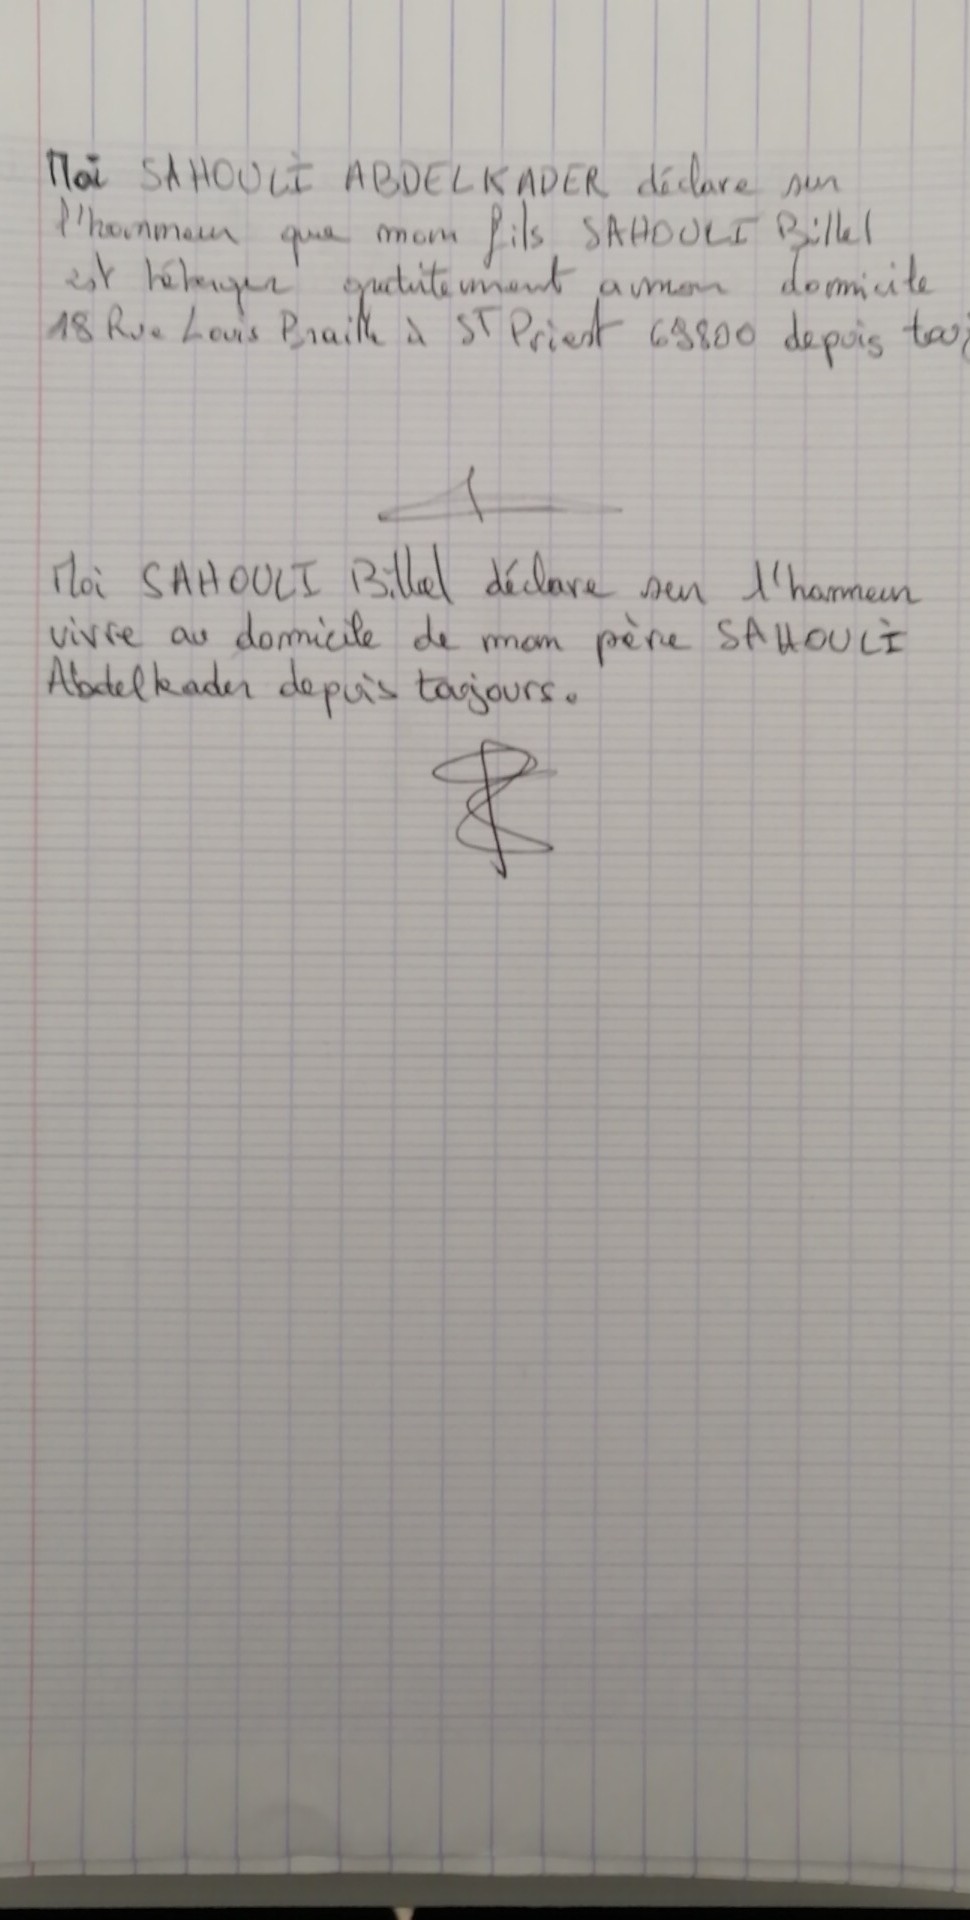 Moi SAHOULI ABDELKADER déclare sur
l'honnmeur que mon fils SAHOULI Billel
est héberger gratuitement a mon domicile
18 Rue Louis Braille à ST Priest 69800 depuis touj
Moi SAHOULI Billel déclare sur l'honneur
vivre au domicile de mon père SAHOULI
Abdelkader depuis toujours.